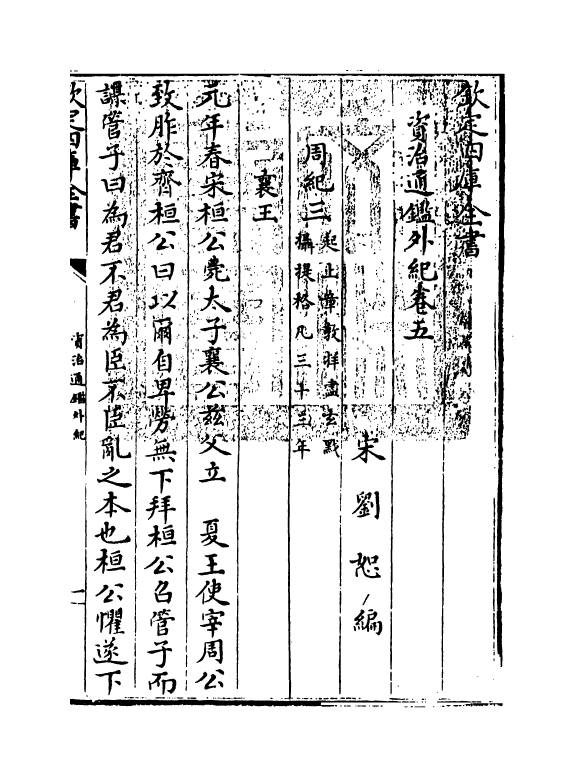 欽定四庫全書
資治通鑑外紀卷五
宋 劉 恕 編
周紀三
起上章敦牂盡玄黓
攝提格凡三十三年
襄王
元年春宋桓公薨太子襄公兹父立 夏王使宰周公
致胙於齊桓公曰以爾自卑勞無下拜桓公召管子而
謀管子曰為君不君為臣不臣亂之本也桓公懼遂下
欽定四庫全書
資治通鑑外紀
一